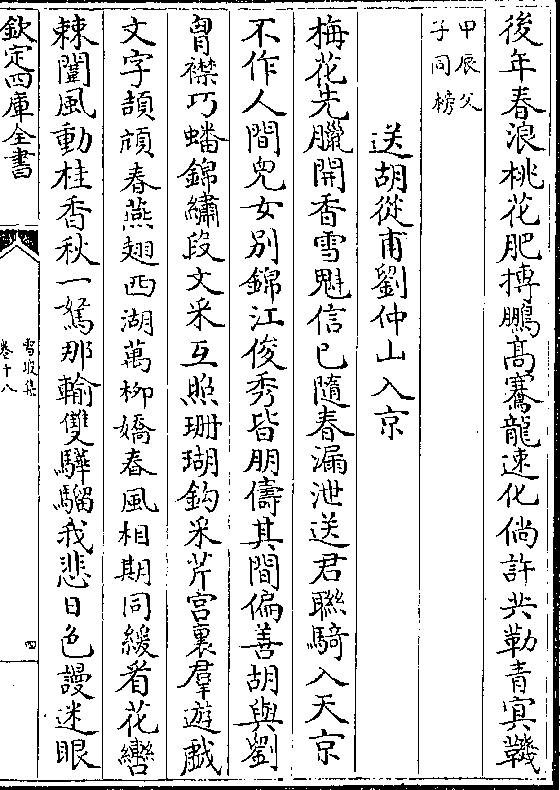 後年春浪桃花肥摶鵬髙騫龍速化倘許共勒青㝠鞿
甲辰父
子同榜
送胡從甫劉仲山入京
梅花先臘開香雪魁信已隨春漏泄送君聯騎入天京
不作人間兒女别錦江俊秀皆朋儔其間偏善胡與劉
胷襟巧蟠錦繡段文采互照珊瑚鈎采芹宫裏羣遊戯
文字頡頏春燕翅西湖萬柳嬌春風相期同緩看花轡
棘闈風動桂香秋一駑那輸雙驊騮我悲日色謾迷眼
欽定四庫全書
雪坡集
卷十八
四